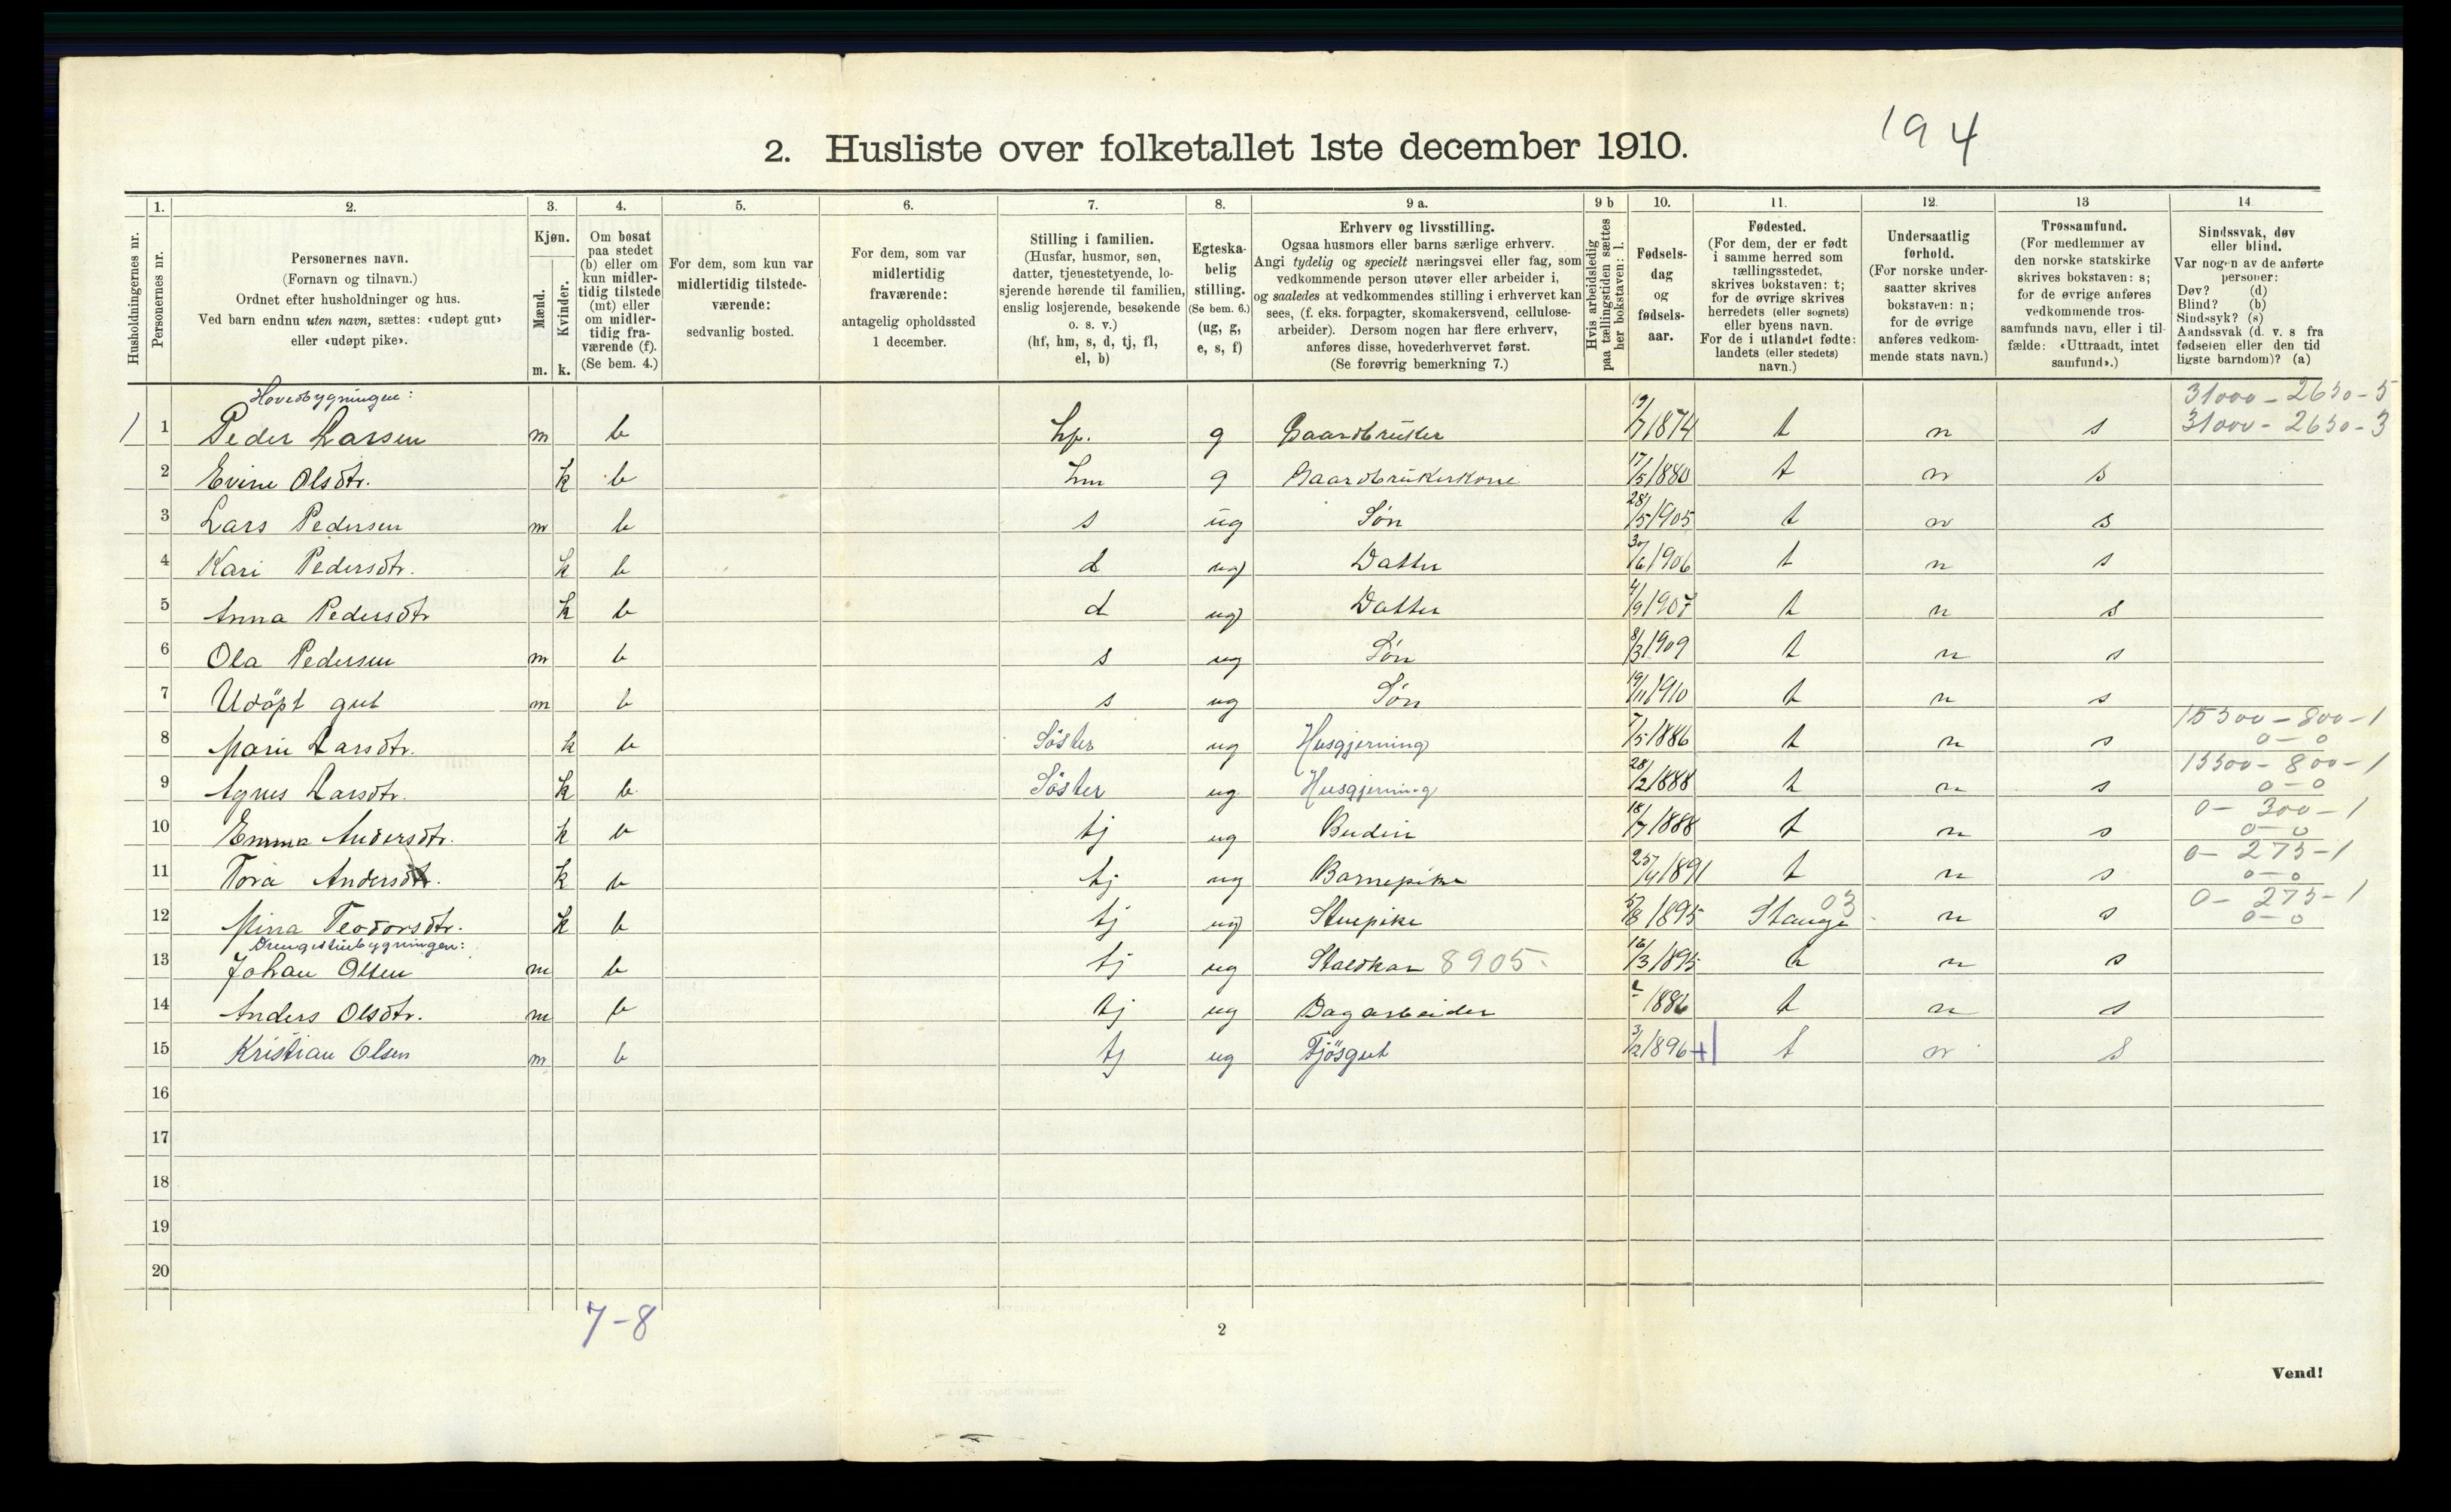 194
2. Husliste over folketallet 1ste december 1910.
Husholdningernes nr.
1.
Personernes nr.
2.
Personernes navn.
(Fornavn og tilnavn.)
Ordnet efter husholdninger og hus.
Ved barn endnu uten navn, sættes: «udøpt gut»
eller «udøpt pike».
3.
Kjøn.
Mænd.
Kvinder.
m. k.
4.
Om bosat
paa stedet
(b) eller om
kun midler-
tidig tilstede
(mt) eller
om midler-
tidig fra-
værende (f).
(Se bem. 4.)
5.
For dem, som kun var
midlertidig tilstede-
værende:
sedvanlig bosted.
6.
For dem, som var
midlertidig
fraværende:
antagelig opholdssted
1 december.
7.
Stilling i familien.
(Husfar, husmor, søn,
datter, tjenestetyende, lo-
sjerende hørende til familien,
enslig losjerende, besøkende
o. s. v.)
(hf, hm, s, d, tj, fl,
el, b)
8.
Egteska-
belig
stilling.
(Se bem. 6.)
(ug, g,
e, s, f)
9 a.
Erhverv og livsstilling.
Ogsaa husmors eller barns særlige erhverv.
Angi tydelig og specielt næringsvei eller fag, som
vedkommende person utøver eller arbeider i,
og saaledes at vedkommendes stilling i erhvervet kan
sees, (f. eks. forpagter, skomakersvend, cellulose-
arbeider). Dersom nogen har flere erhverv,
anføres disse, hovederhvervet først.
(Se forøvrig bemerkning 7.)
9 b
Hvis arbeidsledig
paa tællingstiden sættes
her bokstaven: l.
10.
Fødsels-
dag
og
fødsels-
aar.
11.
Fødested.
(For dem, der er født
i samme herred som
tællingsstedet,
skrives bokstaven: t;
for de øvrige skrives
herredets (eller sognets)
eller byens navn.
For de i utlandet fødte:
landets (eller stedets)
navn.)
12.
Undersaatlig
forhold.
(For norske under-
saatter skrives
bokstaven: n;
for de øvrige
anføres vedkom-
mende stats navn.)
13
Trossamfund.
(For medlemmer av
den norske statskirke
skrives bokstaven: s;
for de øvrige anføres
vedkommende tros-
samfunds navn, eller i til-
fælde: «Uttraadt, intet
samfund».)
14
Sindssvak, døv
eller blind.
Var nogen av de anførte
personer:
Døv? (d)
Blind? (b)
Sindssyk? (s)
Aandssvak (d. v. s fra
fødselen eller den tid
ligste barndom)? (a)
Hovedbygningen: 31000 - 2650 - 5
1 1 Peder Larsen m b hf. g Gaardbruker 9/7 1874 t n s 31000 - 2650 - 3
2 Evine Olsdtr. k b hm g Gaardbrukerkone 17/5 1880 t n s
3 Lars Pedersen m b s ug Søn 28/5 1905 t n s
4 Kari Pedersdtr. k b d ug Datter 30/6 1906 t n s
5 Anna Pedersdtr k b d ug Datter 4/9 1907 t n s
6 Ola Pedersen m b s ug Søn 8/3 1909 t n s
7 Udöpt gut m b s ug Søn 19/11 1910 t n s
15500 - 800 - 1
8 Marie Larsdtr. k b Söster ug Husgjerning 7/5 1886 t n s 0 - 0
15500 - 800 - 1
9 Agnes Larsdtr. k b Söster ug Husgjerning 28/2 1888 t n s 0 - 0
0 - 300 - 1
10 Emma Andersdtr. k b tj ug Budeie 18/7 1888 t n s 0 - 0
0 - 275 - 1
11 Tora Andersdtr. k b tj ug Barnepike 25/4 1891 t n s 0 - 0
03 0 - 275 - 1
12 Mina Teodorsdtr. k b tj ug Stuepike 5/8 1895 Stange n s 0 - 0
Drengestuebygningen:
13 Johan Olsen m b tj ug Staldkar 8905 16/3 1895 t n s
14 Anders Olsdtr. m b tj ug Dagarbeider 1886 t n s
15 Kristian Olsen m b tj ug Fjösgut 3/2 1896 t n s
16
17
18
19
20
7-8
2
Vend!